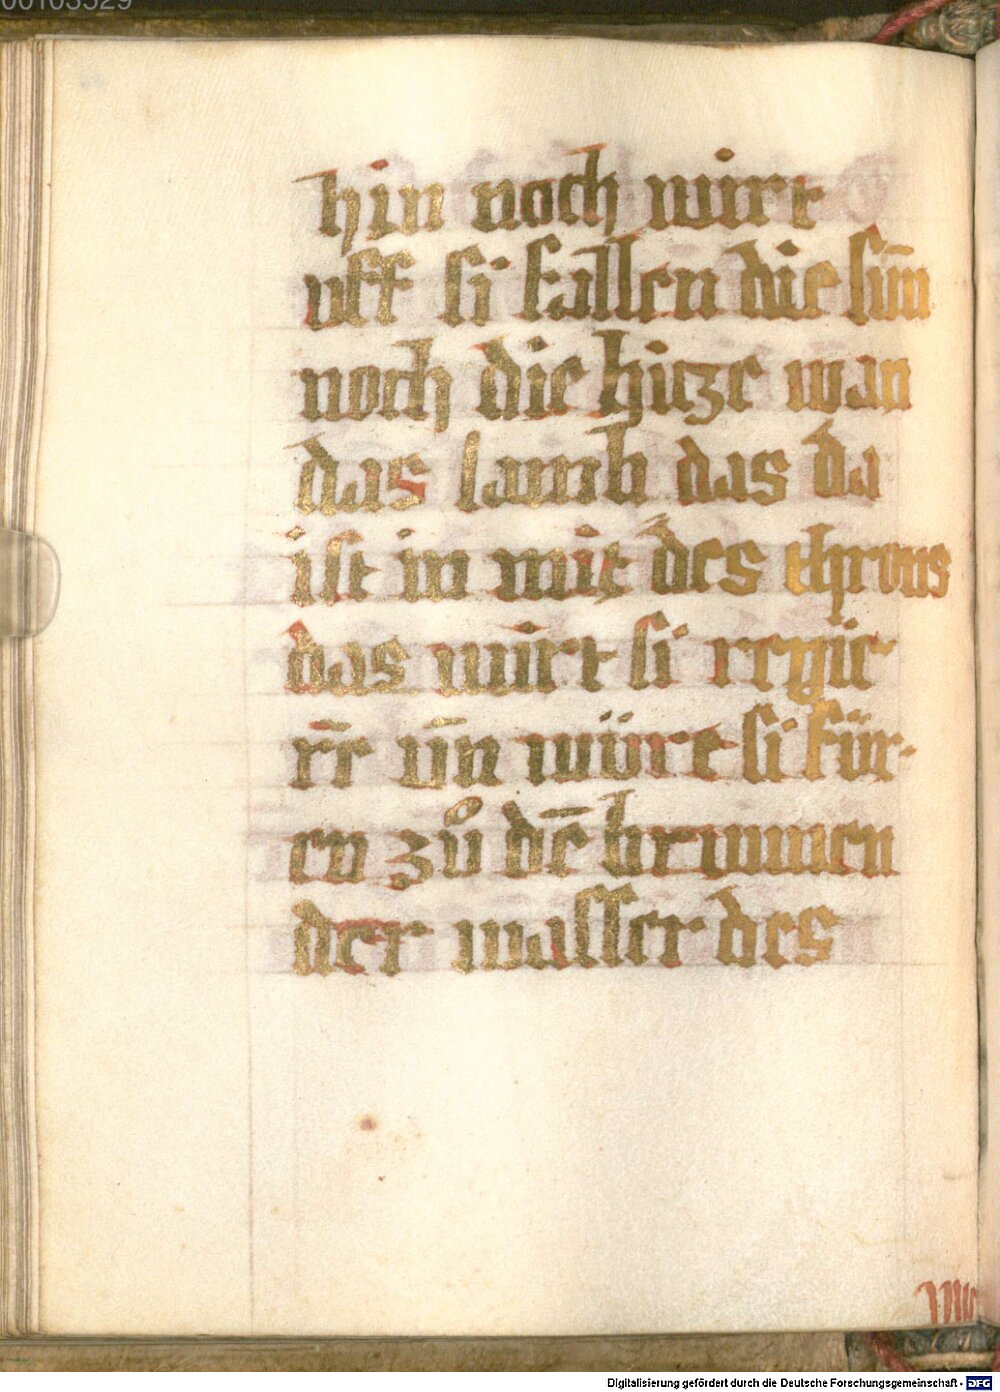 00103529
hin noch wirt
vff si fallen die sūn
noch die hitze wan
das lamb das da
ist in mit des throns
das wirt si regie-
rē vn̄ würt si für-
en zů dē brunnen
der wasser des
Digitalisierung gefördert durch die Deutsche Forschungsgemeinschaft - DFG